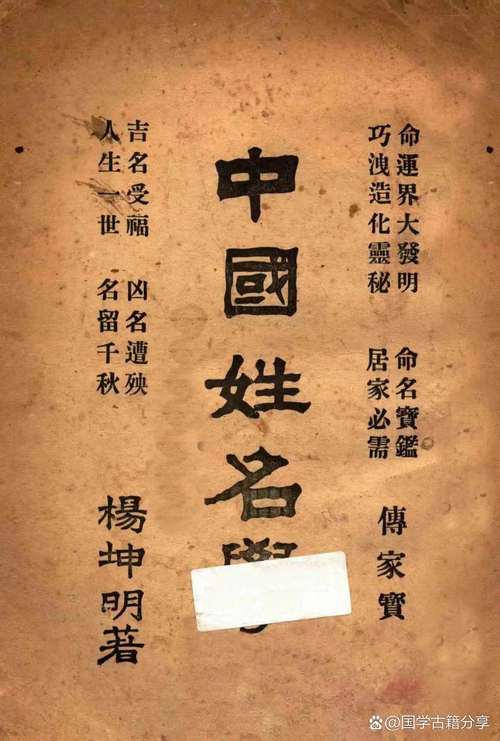 命運界大發明
巧洩造化靈秘
命名寶鑑
居家必需
傳家寶
中國姓名學
吉名受福
人生一世
凶名遭殃
名留千秋
楊坤明著
@国学古籍分享